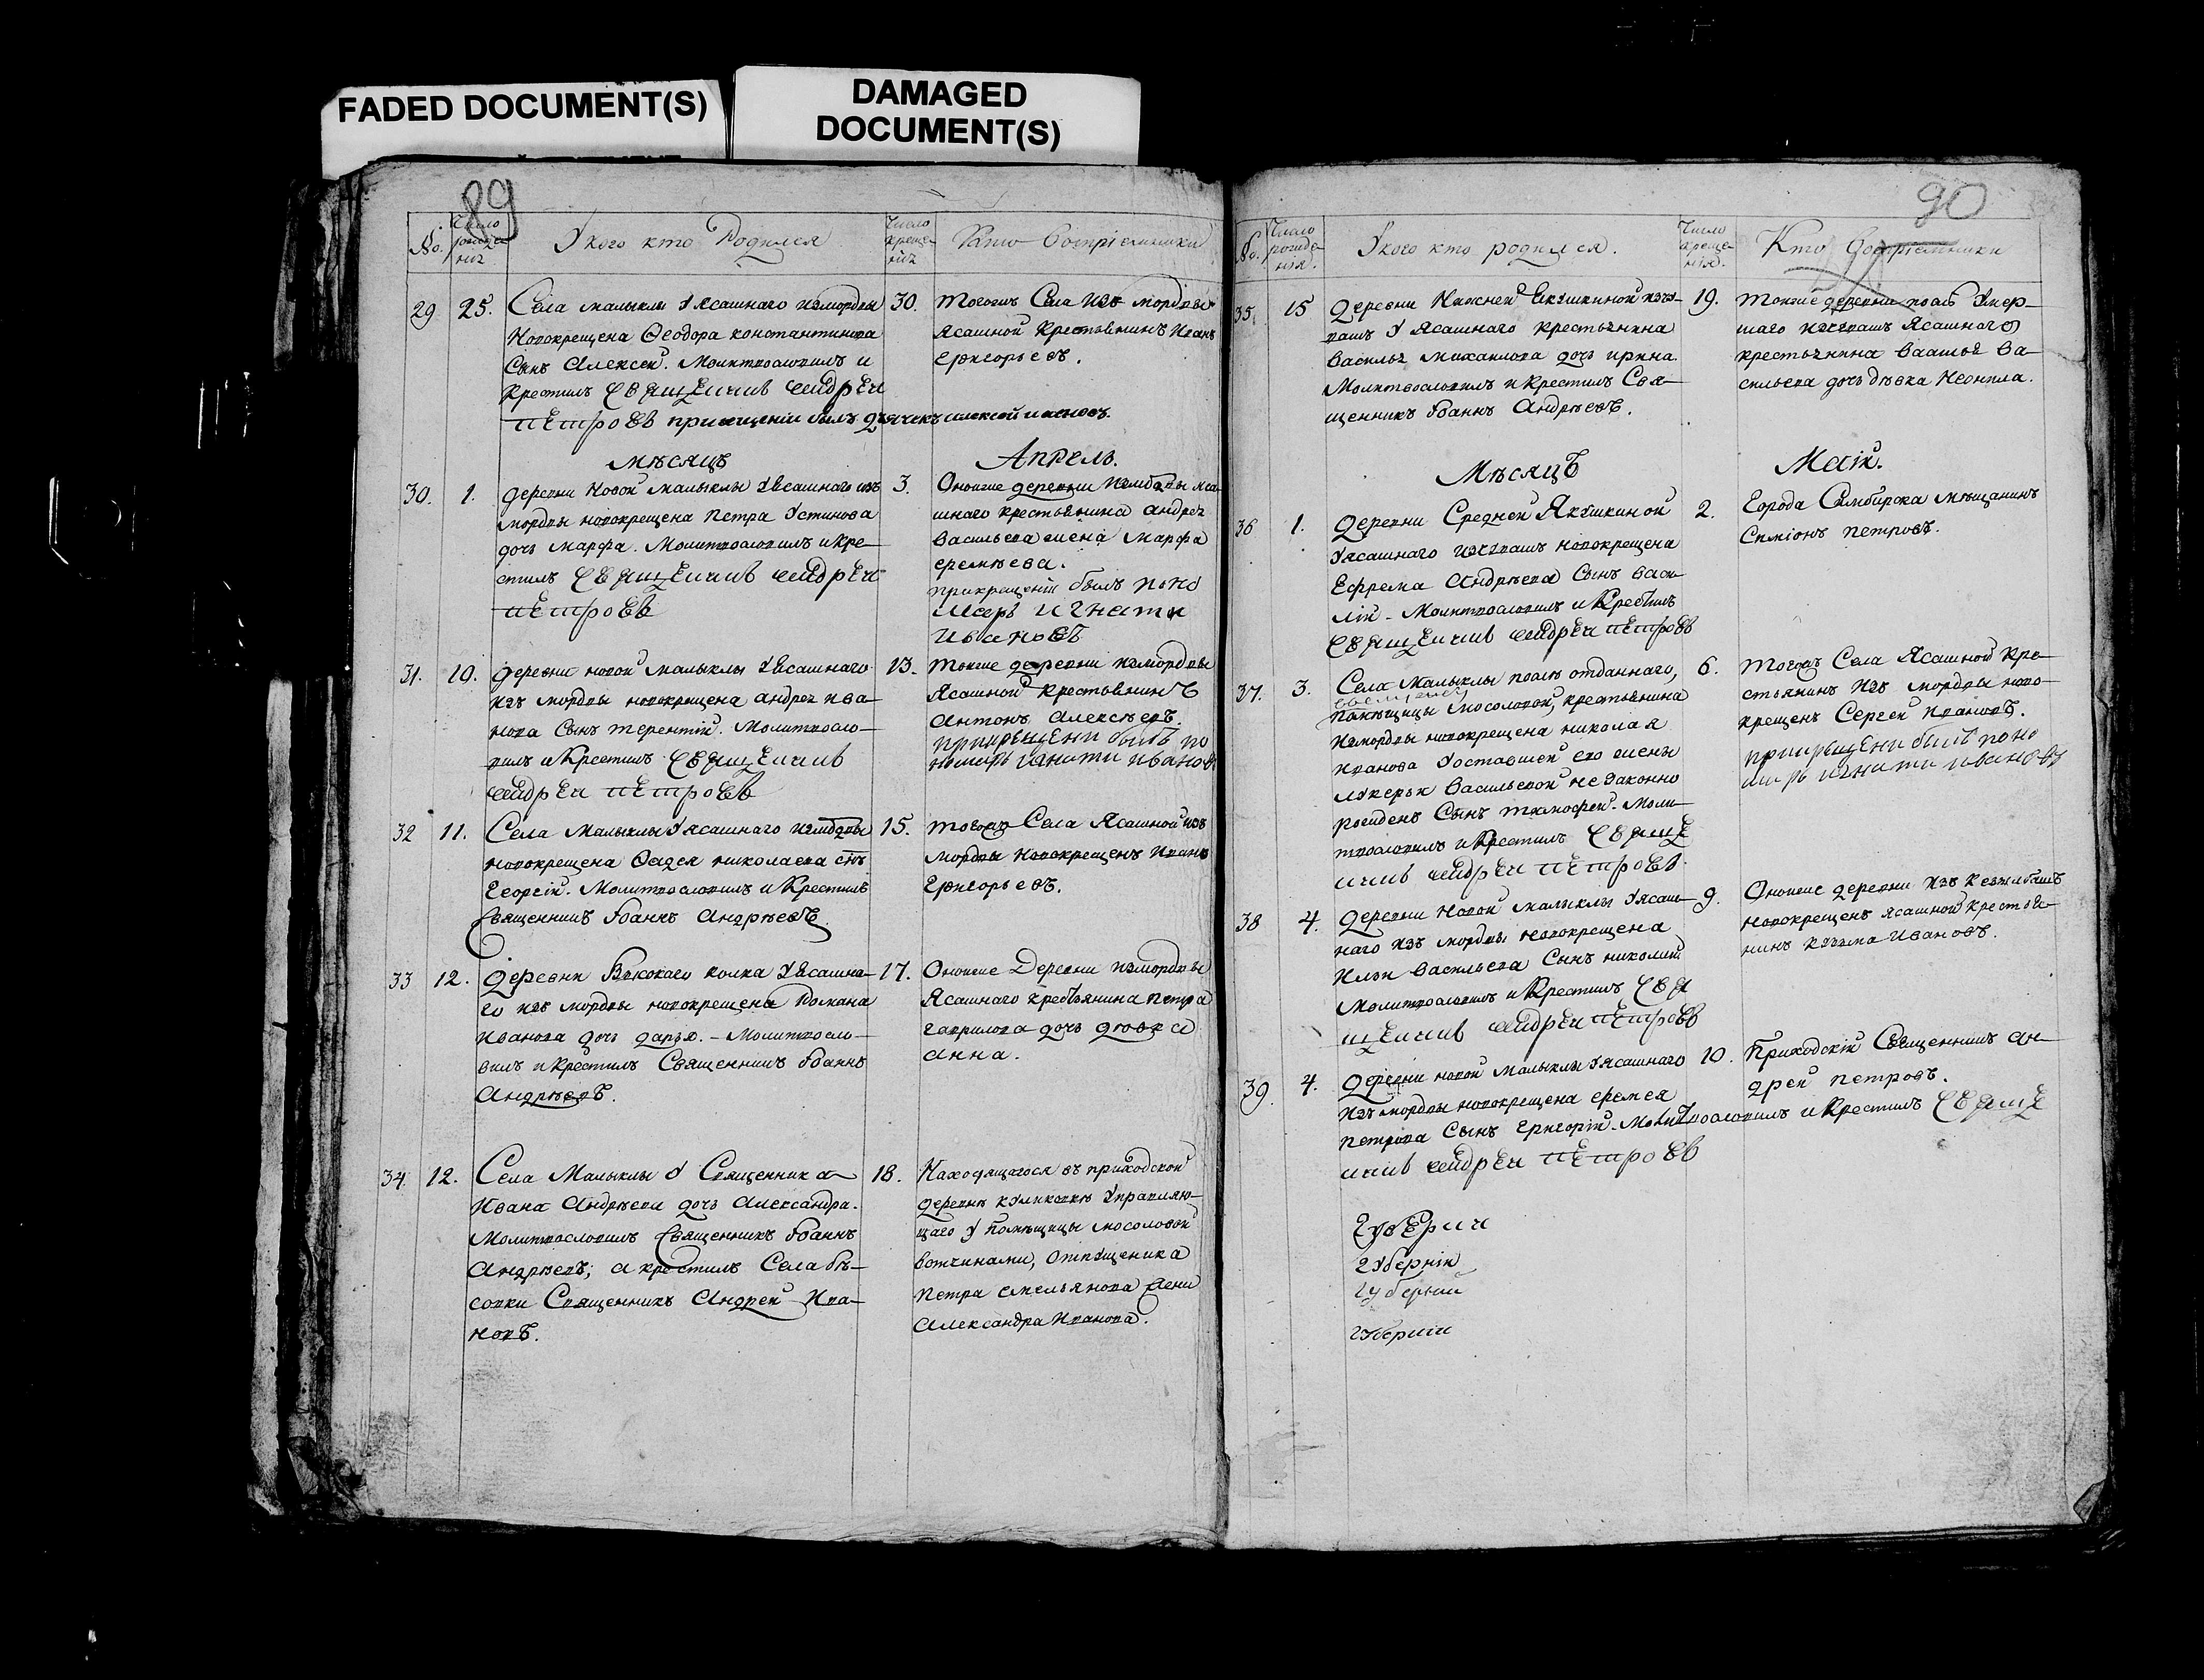 FADED DOCUMENT(S)
DAMAGED
DOCUMENT(S)
89
No.
Число
рожде-
нія
У кого кто Родился
Число
креще-
нія
Кто Воспріемники
29
25.
Села малыклы У Ясашнаго изъ мордвы
Новокрещена Ѳеодора константинова
Сынъ Алексей. Молитвословилъ и
Крестилъ священникъ андреи
петровъ при крещеніи былъ дьячекъ алексей
30.
тогожъ Села изъ мордвы
Ясашной крестьянинъ Иванъ
Григорьевъ.
Мѣсяцъ
Апрель.
30.
1.
деревни новой малыклы У Ясашнаго изъ
мордвы новокрещена Петра Устинова
дочь марфа. Молитвословилъ и кре-
стилъ священникъ андреи
петровъ
3.
Оной же деревни изъ мордвы яса-
шнаго крестьянина андрея
Васильева жена марфа
еремѣева.
при крещеніи былъ поно
марь игнати
ивановъ
31.
10.
деревни новой малыклы У Ясашнаго
изъ мордвы новокрещена андрея ива-
нова Сынъ терентій. Молитвосло-
вилъ и Крестилъ священникъ
андреи петровъ
13.
тоеже деревни изъ мордвы
Ясашной крестьянинъ
Антонъ Алексѣевъ.
при крещени былъ по
номарь игнати ивановъ
32
11.
Села Малыклы У ясашнаго изъ мордвы
новокрещена Ѳадея николаева снъ
Георгій. Молитвословилъ и Крестилъ
Священникъ Іоаннъ Андрѣевъ
15.
тогожъ Села Ясашной изъ
мордвы Новокрещенъ Иванъ
Григорьевъ.
33
12.
Деревни Высокаго колка У Ясашна-
го изъ мордвы новокрещена Романа
Иванова дочь дарья. - Молитвосло-
вилъ и крестилъ Священникъ Іоаннъ
Андрѣевъ.
17.
Оной же Деревни изъ мордвы
Ясашнаго крестьянина петра
гаврилова дочь девка
анна.
34.
12.
Села Малыклы У Священника
Ивана Андрѣева дочь Александра.
Молитвословилъ Священникъ Іоаннъ
Андрѣевъ; а крестилъ Села бѣ-
совки Священникъ Андрей Ива-
новъ.
18.
Находящагося въ приходской
деревнѣ куликовкѣ Управляю-
щаго У помѣщицы мосоловой
вотчинами, отпущеника
петра емельянова жена
Александра Иванова.
90
No.
Число
рожде-
нія.
У кого кто родился.
Число
креще-
нія.
Кто Воспріемники
35.
15
Деревни Нижней Якушкиной изъ чу-
вашъ У Ясашнаго крестьянина
Василья михаилова дочь ирина.
Молитвословилъ и крестилъ Свя-
щенникъ Іоаннъ Андрѣевъ.
19.
тоеже деревни послѣ Умер-
шаго изъ чувашъ Ясашнаго
крестьянина Василья Ва-
сильева дочь дѣвка Неонила.
Мѣсяцъ
Маій.
36
1.
Деревни Средней Якушкиной
У ясашнаго изъ чувашъ новокрещена
Ефрема Андрѣева Сынъ Васи-
лій - Молитвословилъ и Крестилъ
священникъ андреи петровъ
2.
Города Симбирска мѣщанинъ
Симіонъ Петровъ.
37.
3.
Села Малыклы послѣ отданнаго,
помѣщицы мосоловой, крестьянина
изъ мордвы новокрещена николая
иванова У оставшей его жены
лукерьи Васильевой незаконно
рожденъ Сынъ тимофей. Моли-
твословилъ и крестилъ свяще
нникъ андреи петровъ
6.
Тогожъ Села Ясашной кре-
стьянинъ изъ мордвы ново-
крещенъ Сергей Ивановъ.
при крещени былъ поно
марь игнати ивановъ
38
4.
деревни новой малыклы У ясаш-
наго изъ мордвы новокрещена
Ильи Васильева Сынъ николай
Молитвословилъ и крестилъ свя
щенникъ андреи петровъ
9.
Оной же деревни изъ
новокрещенъ ясашной крестья-
нинъ кузьма Ивановъ.
39.
4.
Деревни новой Малыклы У ясашнаго
изъ мордвы новокрещена еремея
петрова Сынъ григорій - Молитвословилъ и крестилъ свяще
нникъ андреи петровъ
10.
Приходскій Священникъ ан-
дрей петровъ.
губерни
губерніи
губерніи
губерніи